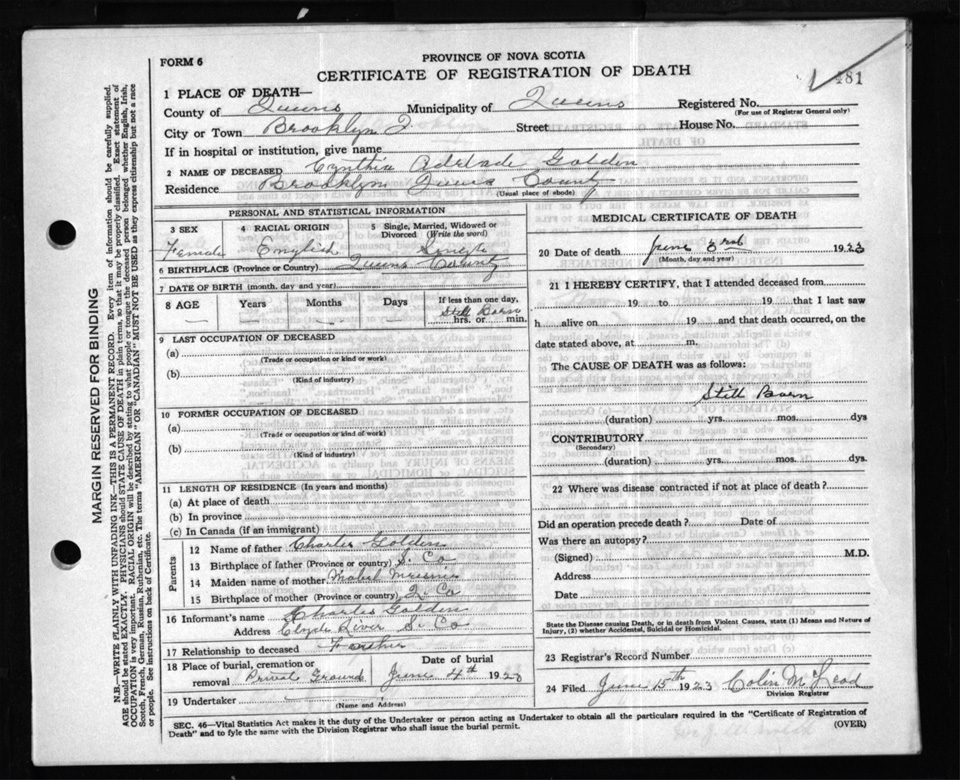 FORM 6
PROVINCE OF NOVA SCOTIA
CERTIFICATE OF REGISTRATION OF DEATH
481
1 PLACE OF DEATH—
County of Queens Municipality of Queens Registered No.
(For use of Registrar General only)
City or Town Brooklyn Street House No.
If in hospital or institution, give name
2 NAME OF DECEASED Cynthia Golden
Residence Brooklyn Queens County
(Usual place of abode)
PERSONAL AND STATISTICAL INFORMATION
3 SEX 4 RACIAL ORIGIN 5 Single, Married, Widowed or Divorced (Write the word)
Female English Single
6 BIRTHPLACE (Province or Country) Queens County
7 DATE OF BIRTH (month, day and year)
8 AGE Years Months Days If less than one day,
Still Born
hrs. or min.
9 LAST OCCUPATION OF DECEASED
(a)
(Trade or occupation or kind or work)
(b)
(Kind of industry)
10 FORMER OCCUPATION OF DECEASED
(a)
(Trade or occupation or kind or work)
(b)
(Kind of industry)
11 LENGTH OF RESIDENCE (In years and months)
(a) At place of death
(b) In province
(c) In Canada (if an immigrant)
Parents
12 Name of father Charles Golden
13 Birthplace of father (Province or country) S. Co
14 Maiden name of mother
15 Birthplace of mother (Province or country) Q Co
16 Informant's name Charles Golden
Address Clyde River S. Co
17 Relationship to deceased Father
18 Place of burial, cremation or removal Privat Ground Date of burial June 4th 1923
19 Undertaker
(Name and Address)
MEDICAL CERTIFICATE OF DEATH
20 Date of death June 3rd 1923
(Month, day and year)
21 I HEREBY CERTIFY, that I attended deceased from
19 to 19 that I last saw
h alive on 19 and that death occurred, on the
date stated above, at m.
The CAUSE OF DEATH was as follows:
Still Born
(duration) yrs. mos. dys
CONTRIBUTORY
(Secondary)
(duration) yrs. mos. dys.
22 Where was disease contracted if not at place of death?
Did an operation precede death? Date of
Was there an autopsy?
(Signed) M.D.
Address
Date
State the Disease causing Death, or in death from Violent Causes, state (1) Means and Nature of
Injury, (2) whether Accidental, Suicidal or Homicidal.
23 Registrar's Record Number
24 Filed June 15th 1923 Colin McLeod
Division Registrar
SEC. 46—Vital Statistics Act makes it the duty of the Undertaker or person acting as Undertaker to obtain all the particulars required in the "Certificate of Registration of
Death" and to fyle the same with the Division Registrar who shall issue the burial permit.
(OVER)
MARGIN RESERVED FOR BINDING
N.B.—WRITE PLAINLY WITH UNFADING INK—THIS IS A PERMANENT RECORD. Every item of information should be carefully supplied.
AGE should be stated EXACTLY. PHYSICIANS should STATE CAUSE OF DEATH in plain terms, so that it may be properly classified. Exact statement of
OCCUPATION is very important. RACIAL ORIGIN will be described by stating to what people or tongue the deceased person belonged whether English, Irish,
Scotch, French, German, Russian, Ruthenian, etc. The terms "AMERICAN" OR "CANADIAN" MUST NOT BE USED as they express citizenship but not a race
or people. See instructions on back of Certificate.